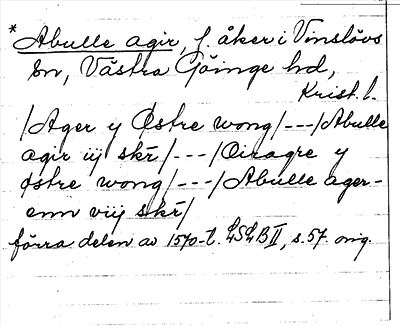 *Abulle agir, f. åker i Vinslövs
sn, Västra Göinge hd,
Krist. l.
/Ager y Østre wong/---/Abulle
agir iij skr̄/---/Oiragre y
østre wong/---/Abulle ager-
enn viij skr̄/
förra delen av 1570-t. LSLB II, s. 57. orig.